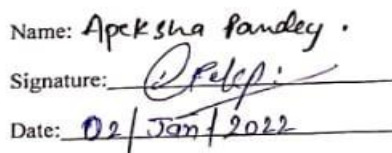 Name: Apeksha Pandey.
Signature:
Date: 02/Jan/2022